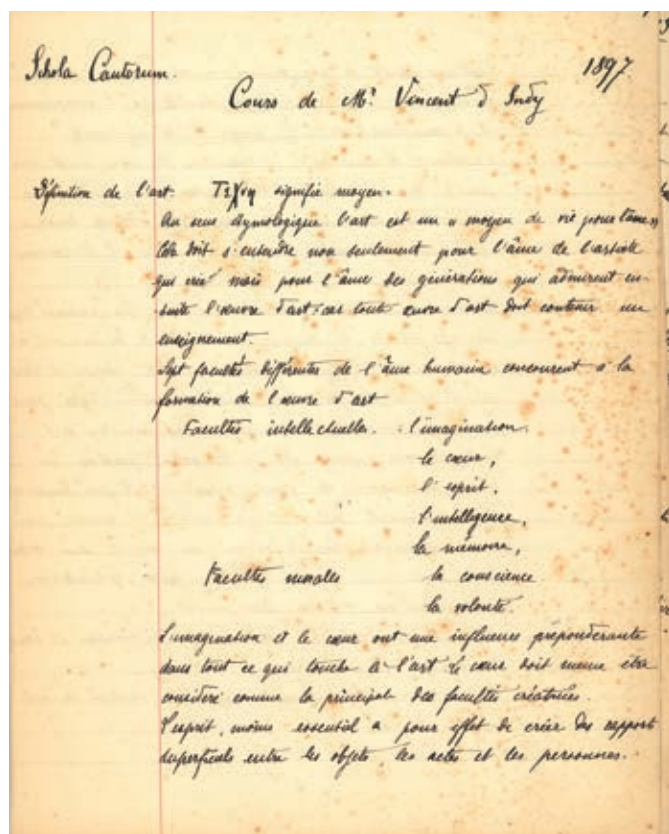 Schola Cantorum. 1897
Cours de Mr. Vincent d'Indy
Définition de l'art. Τέχνη signifie moyen.
Au sens étymologique l'art est un « moyen de vie pour l'âme »
Cela doit s'entendre non seulement pour l'âme de l'artiste
qui crée mais pour l'âme des générations qui admirent en-
suite l'œuvre d'art : car toute œuvre d'art doit contenir un
enseignement.
Sept facultés différentes de l'âme humaine concourent à la
formation de l'œuvre d'art
Facultés intellectuelles. : l'imagination.
le cœur,
l'esprit,
l'intelligence,
la mémoire,
Facultés morales la conscience
la volonté.
L'imagination et le cœur ont une influence prépondérante
dans tout ce qui touche à l'art le cœur doit même être
considéré comme la principal des facultés créatrices.
L'esprit, moins essentiel a pour effet de créer des rapport
superficiels entre les objets, les actes et les personnes.